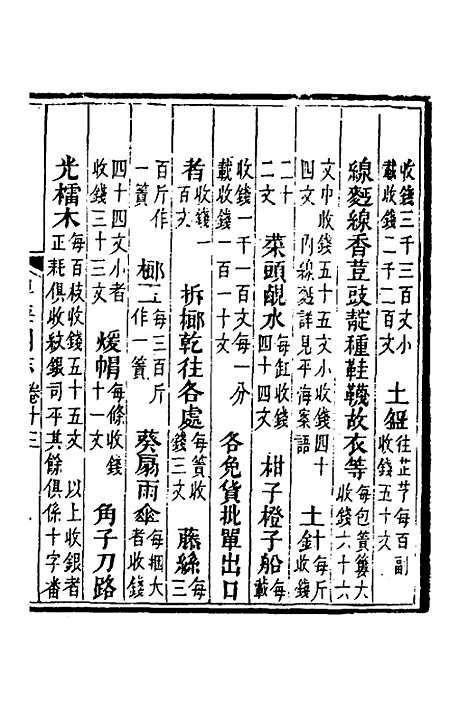 收錢三千三百文小
載收錢二千二百文
土 往芷芋每百副
收錢五十文
線麪線香荳豉靛種鞋襪故衣等 每包簍大
收錢六十六
文中收錢五十五文小收錢四十
四文 內線麪詳見平海案語
土針 每斤
收錢
二十
二文
菜頭鹹水 每缸收錢
四十四文
柑子橙子船 每
載
收錢一千一百文每一分
載收錢一百一十文
各免貨批單出口
者 收錢一
百文
拆榔乾往各處 每簣收
錢三文
藤絲 每
三
百斤作
一簣
榔 每三百斤
作一簣
葵扇雨傘 每捆大
者收錢
四十四文小者
收錢三十三文
煖帽 每條收錢
一十一文
角子刀路
光檽木 每百枝收錢五十五文 以上收銀者
正耗俱收紋銀司平其餘俱係十字番
粵海關志 卷十三